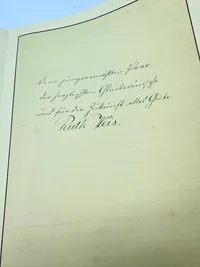 Dem jungvermählten Paar
die herzlichsten Glückwünsche
und für die Zukunft alles Gute
Ruth Weis.